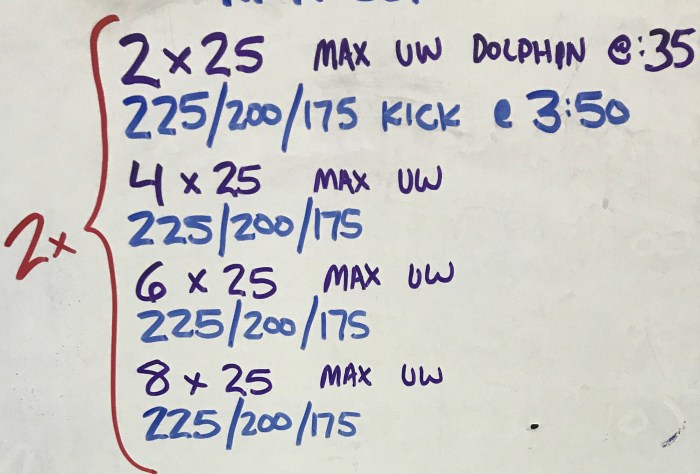 2 x 25 MAX UW DOLPHIN @ :35
225/200/175 KICK @ 3:50
4 x 25 MAX UW
225/200/175
2x
6 x 25 MAX UW
225/200/175
8 x 25 MAX UW
225/200/175